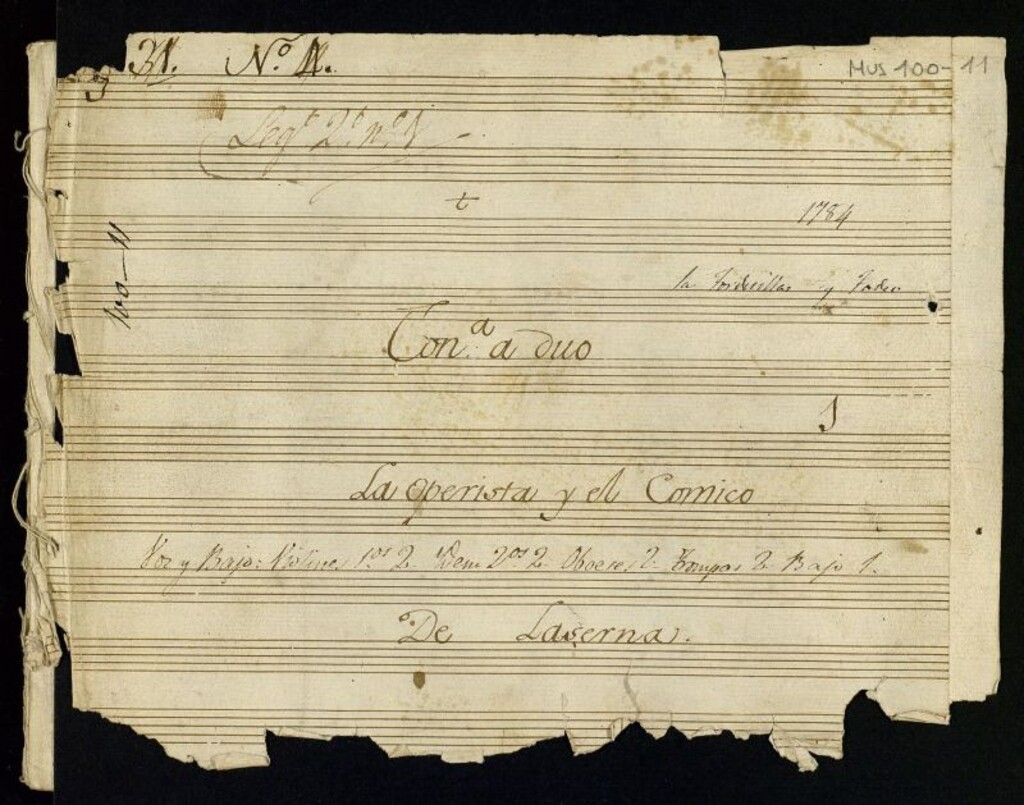 31. Nº 11.
MUS 100-11
Legº 2º nº 1
1784
100-11
la Tordesillas y Tadeo
Con.ª a duo
1
La operista y el Comico
Voz y Bajo: Violines 1os 2 Idem 2os 2 Oboeres 2 Trompas 2 Bajo 1.
De Laserna.